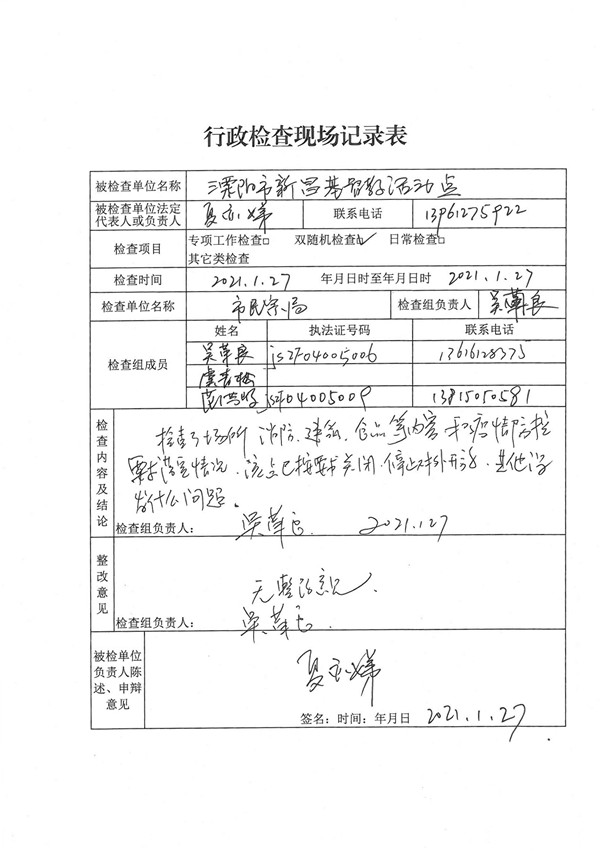 行政检查现场记录表
被检查单位名称 溧阳市新昌基督教活动点
被检查单位法定代表人或负责人 夏 娣 联系电话 13961275922
检查项目 专项工作检查□ 双随机检查☑ 日常检查□
其它类检查
检查时间 2021.1.27 年月日时至年月日时 2021.1.27
检查单位名称 市民宗局 检查组负责人 吴革良
检查组成员 姓名 执法证号码 联系电话
吴革良 jszf04005006 13616128375
jszf04005009 13815050581
检查内容及结论
检查了场所消防、建筑、食品等内容和疫情防控
要求落实情况,该点已按要求关闭,停止对外开放,其他没
有什么问题。
检查组负责人: 吴革良 2021.1.27
整改意见
无整改意见.
检查组负责人: 吴革良
被检单位负责人陈述、申辩意见
夏 娣
签名:时间:年月日 2021.1.27